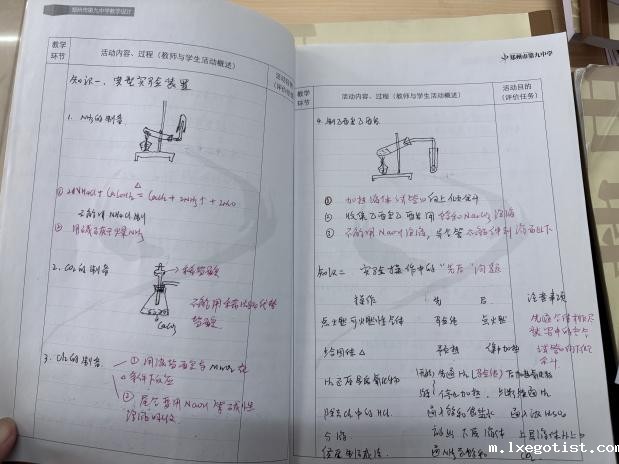 郑州市第九中学教学设计
教学环节
活动内容、过程（教师与学生活动概述）
活动目的
知识一、典型实验装置
1. NH₃的制备
① 2NH₄Cl + Ca(OH)₂ ≜ CaCl₂ + 2NH₃↑ + 2H₂O
不能用NH₄Cl制
② 用碱石灰干燥NH₃
2. CO₂的制备
稀盐酸
不能用稀硫酸代替
盐酸
CaCO₃
3. Cl₂的制备
① 用浓盐酸与MnO₂在
△条件下反应
② 尾气要用NaOH等碱性
溶液吸收
郑州市第九中学
教学环节
活动内容、过程（教师与学生活动概述）
活动目的（评价任务）
4. 制乙酸乙酯
① 加热液体试管口向上倾斜
② 收集乙酸乙酯用饱和Na₂CO₃溶液
③ 不能用NaOH溶液，导管不能伸到液面以下
知识二 实验操作中的“先后”问题
操作 先 后 注意事项
点燃可燃性气体 验纯 点燃
给固体△ 预热 集中加热
H₂还原氧化物
停止加热
除去Cl₂中的HCl 通入饱和食盐水 通入浓H₂SO₄
分液 放出下层液体 上层液体从上口
m.lxegotist.com